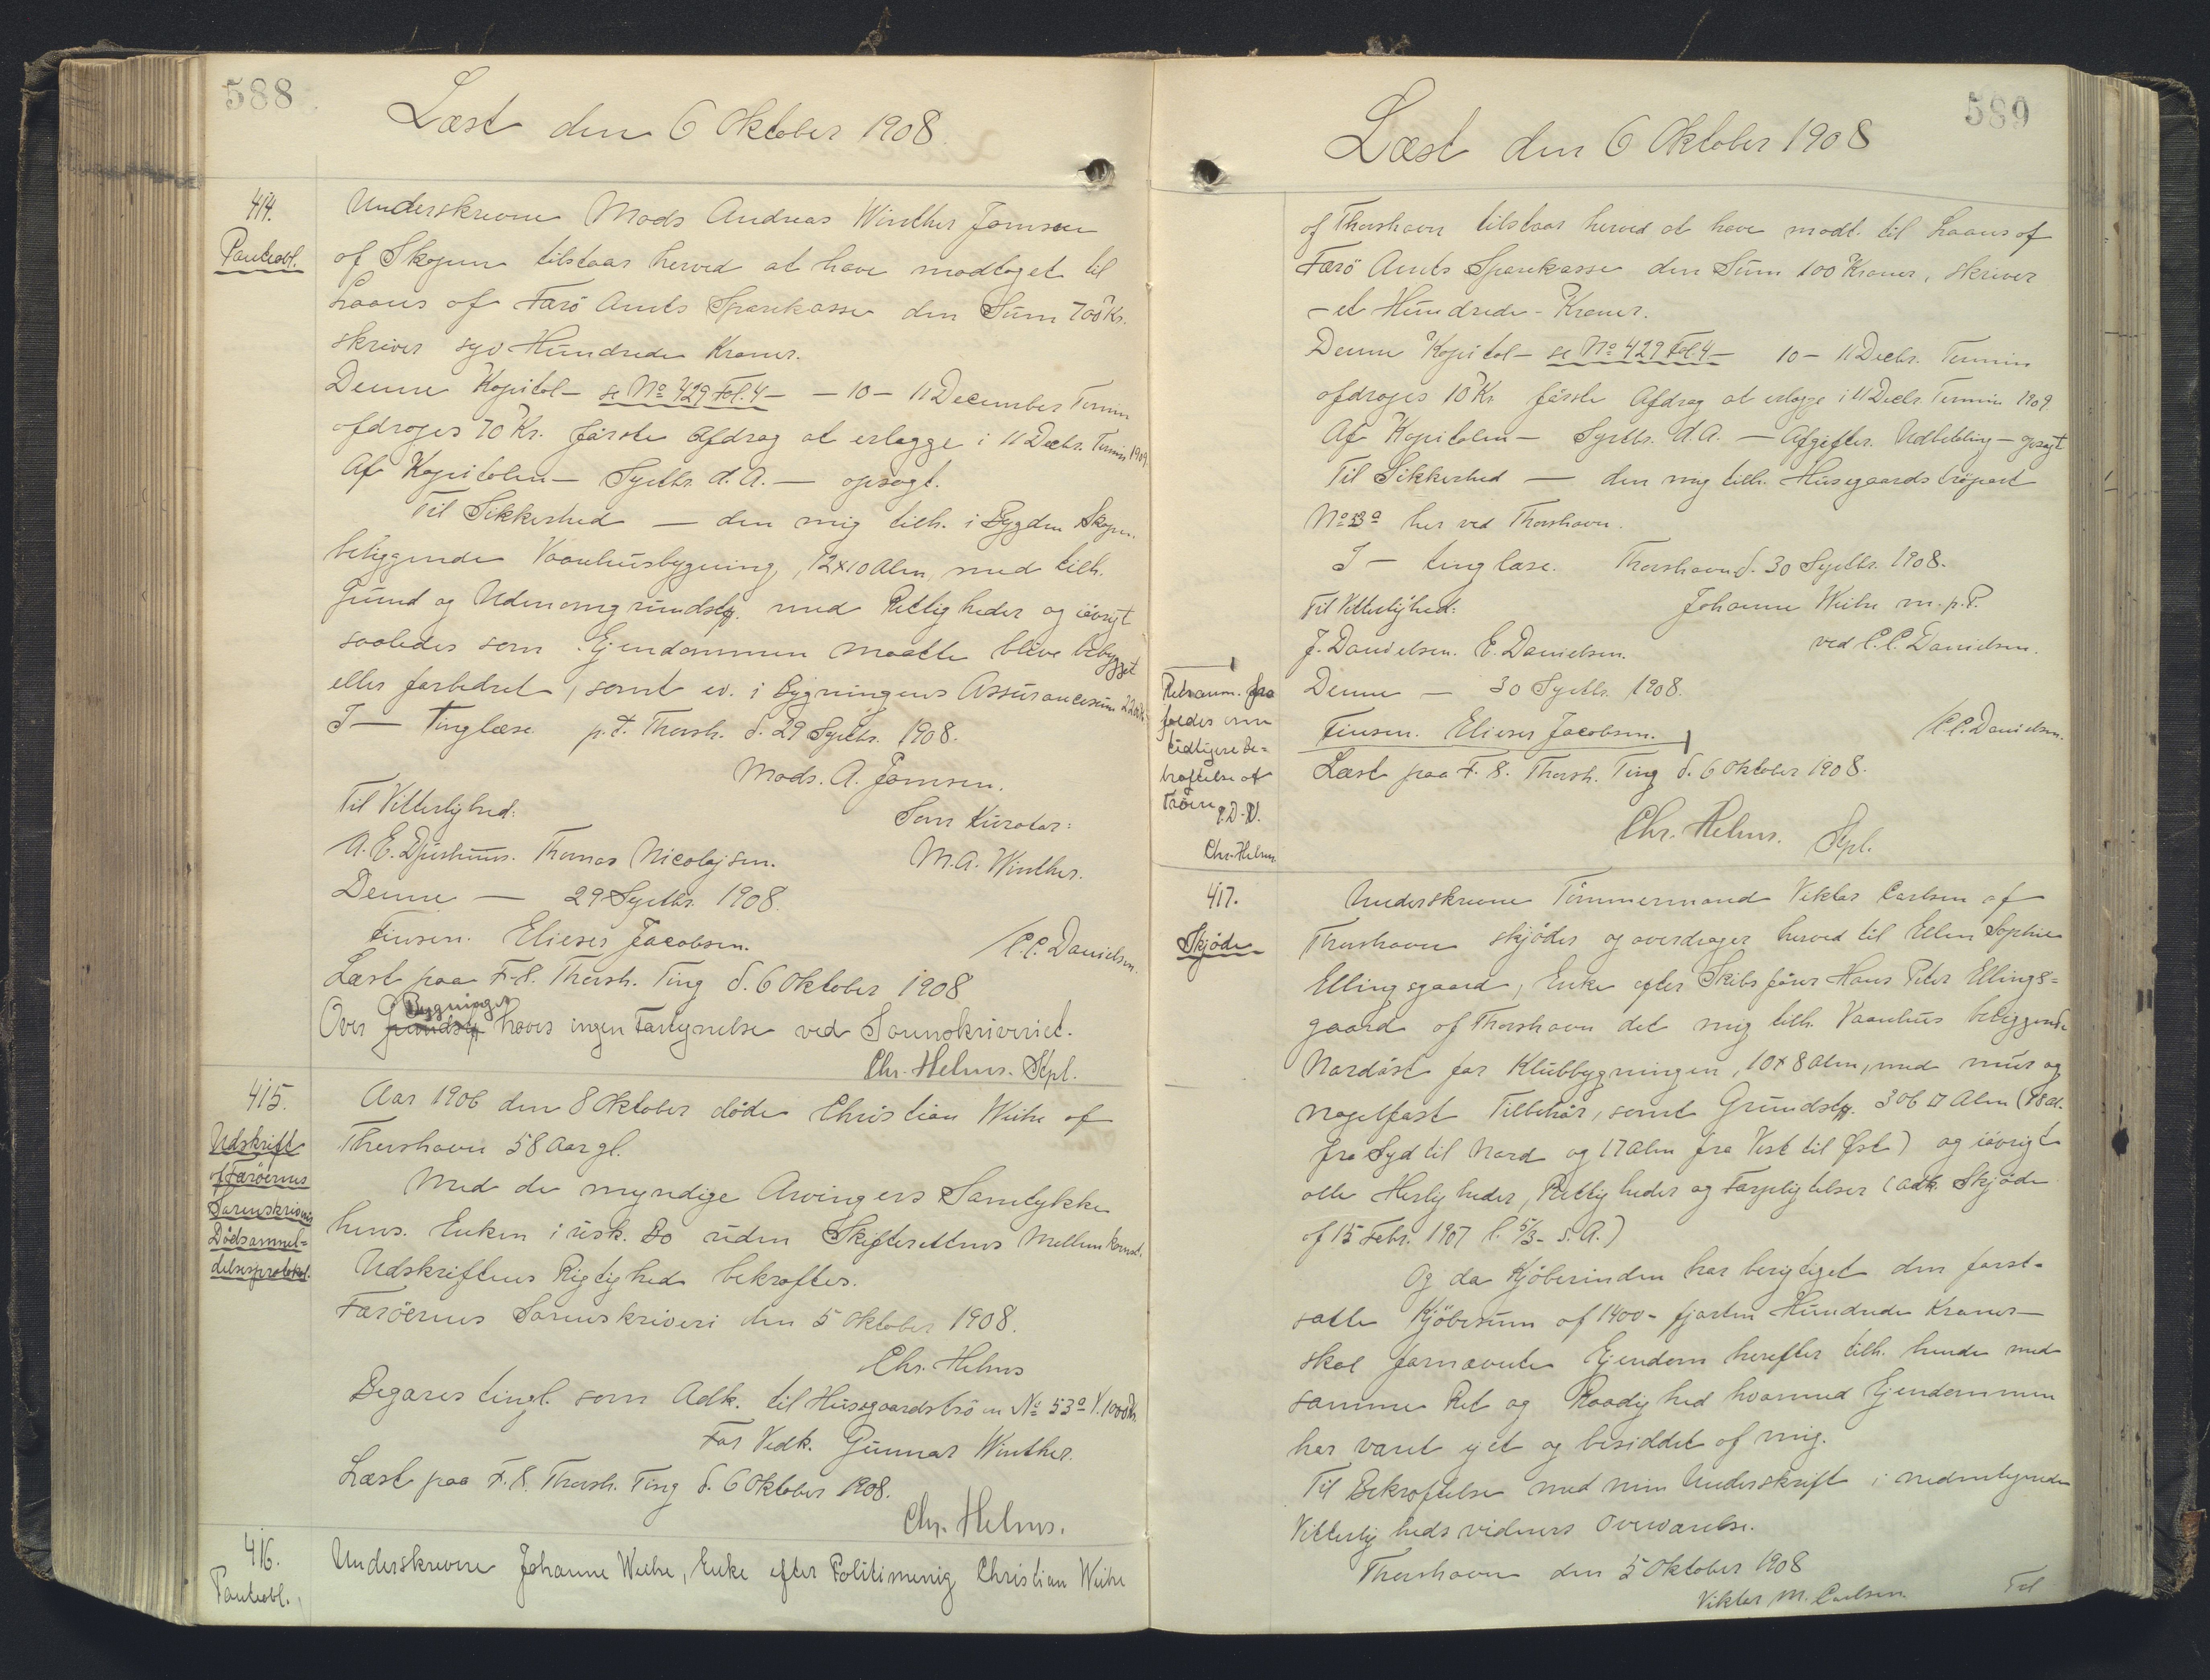 588
Læst den 6 Oktober 1908.
414.
Panteobl.
Underskrevne Mads Andreas Winther Joensen
af Skopun tilstaar herved at have modtaget til
Laans af Færö Amts Sparekasse den Sum 700 Kr.
skriver syv Hundrede Kroner.
Denne Kapital - se No 429 Fol. 4 - - 10 - 11 December Termin
afdrages 70 Kr. förste Afdrag at erlægge i 11 Decbr. Termin 1909.
Af Kapitalen - Septbr. d. A. - opsagt.
Til Sikkerhed - den mig tilh. i Bygden Skopun
beliggende Vaanhusbygning, 12x10 Alen, med tilh.
Grund og Udenomsgrundstk. med Rettigheder og iövrigt
saaledes som Ejendommen maatte blive bebygget
eller forbedret, samt ev. i Bygningens Assurancesum
T - Tinglæse p. t. Thorsh. d. 29 Septbr. 1908.
Mads. A. Joensen.
Til Vitterlighed:
Som Kurator:
A. E. Djurhuus. Thomas Nicolajsen.
M. A. Winther.
Denne - 29 Septbr. 1908.
Finsen. Elieser Jacobsen.
/ P. P. Danielsen.
Læst paa F. S. Thorsh. Ting d. 6 Oktober 1908
Bygningen
Over Grundstk haves ingen Fortegnelse ved Sorenskriveriet.
Chr. Helms. Kpl.
415.
Udskrift
af Færöernes
Sorenskriveris
Dödsanmel-
delsesprotokol.
Aar 1906 den 8 Oktober döde Christian Weihe af
Thorshavn 58 Aar gl.
Med de myndige Arvingers Samtykke
hens. Enken i usk. Bo uden Skifterettens Mellemkomst.
Udskriftens Rigtighed bekræftes.
Færöernes Sorenskriveri den 5 Oktober 1908.
Chr. Helms
Begæres tingl. som Adk. til Husegaardströen No 53a V. 1000 Kr.
For Vedk. Gunnar Winther.
Læst paa F. S. Thorsh. Ting d. 6 Oktober 1908.
Chr. Helms.
416.
Panteobl.
Underskrevne Johanne Weihe, Enke efter Politimenig Christian Weihe
589
Læst den 6 Oktober 1908
af Thorshavn tilstaar herved at have modt. til Laans af
Færö Amts Sparekasse den Sum 100 Kroner, skriver
- et Hundrede - Kroner.
Denne Kapital - se No 429 Fol. 4 - 10 - 11 Decbr. Termin
afdrages 10 Kr. förste Afdrag at erlægge i 11 Decbr. Termin 1909
Af Kapitalen - Septbr. d. A. - Afgifter. Udbetaling - opsagt
Til Sikkerhed - den mig tilh. Husegaardströpart
No 53a her ved Thorshavn.
T - tinglæse. Thorshavn d. 30 Septbr. 1908.
Til Vitterlighed:
Johanne Weihe m. p. P.
J. Danielsen. E. Danielsen.
ved P. P. Danielsen.
Denne - 30 Septbr. 1908.
Finsen. Elieser Jacobsen.
/ P. P. Danielsen.
Læst paa F. S. Thorsh. Ting d. 6 Oktober 1908.
Chr. Helms. Kpl.
fra
tidligere Be-
hæftelse af
Tröen
Chr. Helms.
417.
Skjöde
Underskrevne Tömmermand Viktor Carlsen af
Thorshavn skjöder og overdrager herved til Ellen Sophie
Ellingsgaard, Enke efter Skibsförer Hans Peter Ellings-
gaard af Thorshavn det mig tilh. Vaanhus beliggende
Nordöst for Klubbygningen, 10 x 8 Alen, med mur og
nagelfast Tilbehör, samt Grundstk. 306 □ Alen (18 al.
fra Syd til Nord og 17 Alen fra Vest til Øst) og iövrigt
alle Herligheder, Rettigheder og Forpligtelser (Adk. Skjöde
af 15 Febr. 1907 l. 5/3 - s. A.)
Og da Kjöberinden har berigtiget den fast-
satte Kjöbesum af 1400 - fjorten Hundrede Kroner -
skal fornævnte Ejendom herefter tilh. hende med
samme Ret og Raadighed hvormed Ejendommen
har været ejet og besiddet af mig.
Til Bekræftelse med min Underskrift i nedentegnede
Vitterlighedsvidners Overværelse.
Thorshavn den 5 Oktober 1908
Viktor M. Carlsen.
Til